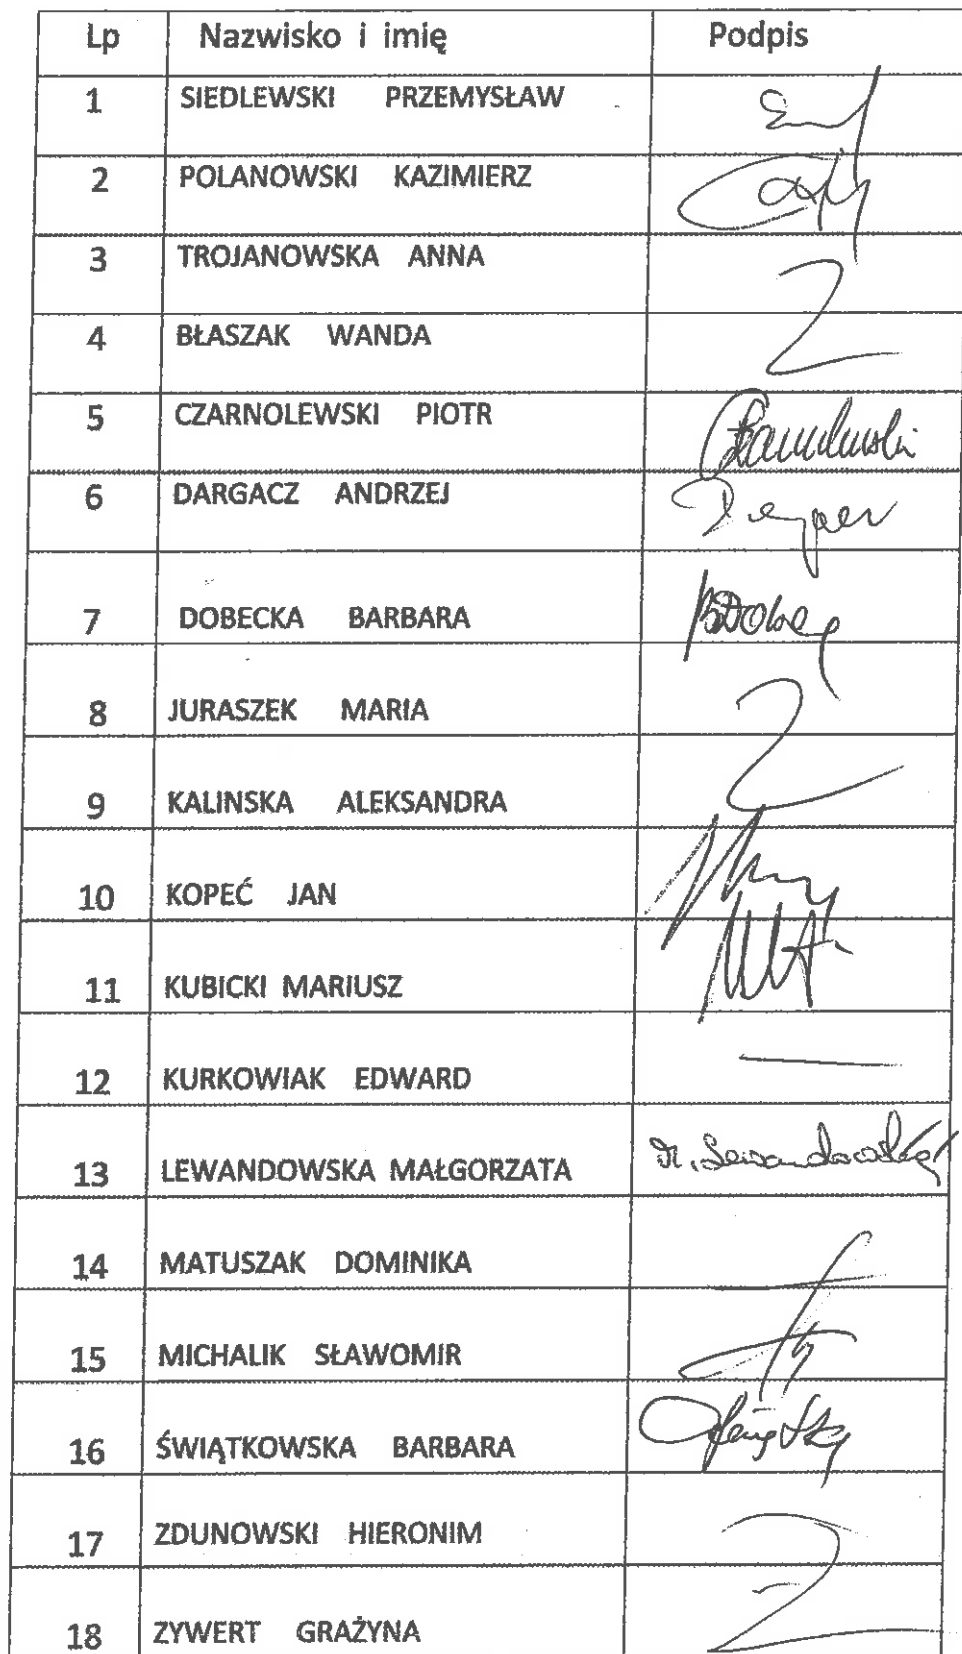 Lp Nazwisko i imię Podpis
1 SIEDLEWSKI PRZEMYSŁAW
2 POLANOWSKI KAZIMIERZ
3 TROJANOWSKA ANNA
4 BŁASZAK WANDA
5 CZARNOLEWSKI PIOTR
6 DARGACZ ANDRZEJ
7 DOBECKA BARBARA
8 JURASZEK MARIA
9 KALINSKA ALEKSANDRA
10 KOPEĆ JAN
11 KUBICKI MARIUSZ
12 KURKOWIAK EDWARD
13 LEWANDOWSKA MAŁGORZATA M. Lewandowska
14 MATUSZAK DOMINIKA
15 MICHALIK SŁAWOMIR
16 ŚWIĄTKOWSKA BARBARA
17 ZDUNOWSKI HIERONIM
18 ZYWERT GRAŻYNA